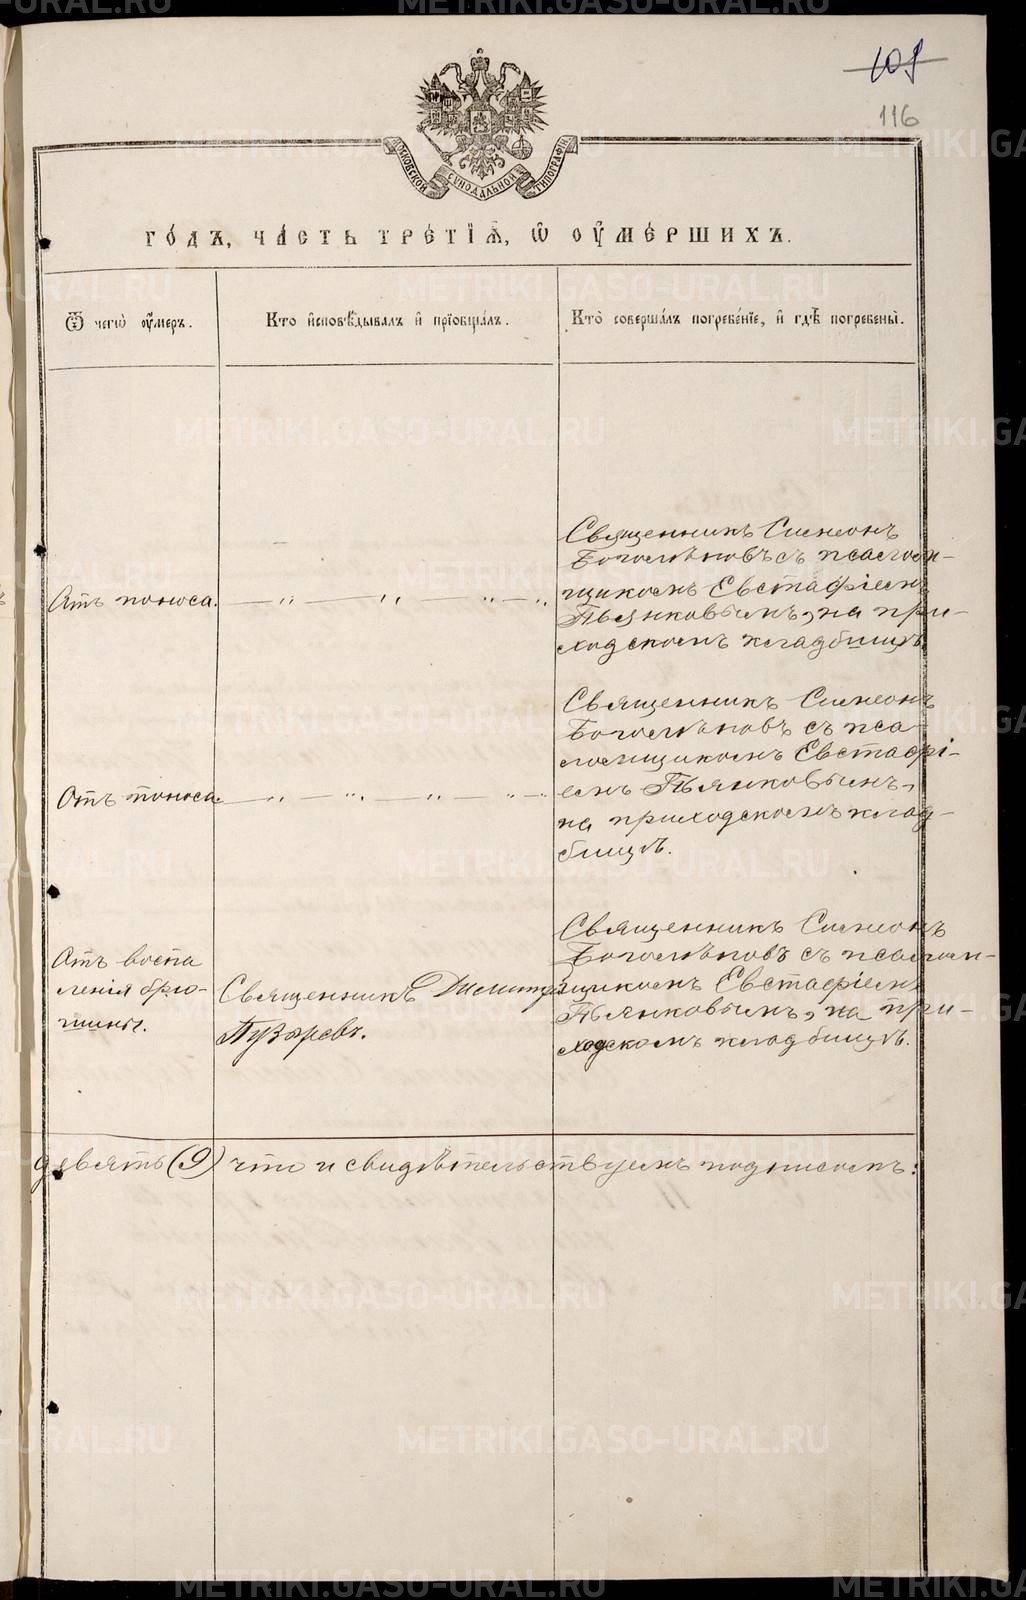 109
116
МОСКОВСКОЙ СѴНОДАЛЬНОЙ ТИПОГРАФІИ
ГО́ДЪ, ЧА́СТЬ ТРЕ́ТІѦ, Ѡ҆ ОУ҆МЕ́РШИХЪ.
Ѿ чегѡ̀ оу҆́меръ.
Кто̀ и҆сповѣ́дывалъ и҆ прїѡбща́лъ.
Кто̀ соверша́лъ погребе́нїе, и҆ гдѣ̀ погребены̀.
Отъ поноса. — „ — „ — „ — „
Священникъ Симеонъ
Богословновъ съ псалом-
щикомъ Евстафіемъ
Пьянковымъ, на при-
ходскомъ кладбищѣ.
Отъ поноса. — „ — „ — „ — „ —
Священникъ Симеонъ
Богословновъ съ пса-
ломщикомъ Евстафі-
емъ Пьянковымъ,
на приходскомъ клад-
бищѣ.
Отъ воспа
ленія брю-
шины.
Священникъ Димитрій
Пузыревъ.
Священникъ Симеонъ
Богословновъ съ псалом-
щикомъ Евстафіемъ
Пьянковымъ, на при-
ходскомъ кладбищѣ.
девять (9) что и свидѣтельствуемъ подписомъ:
METRIKI.GASO-URAL.RU